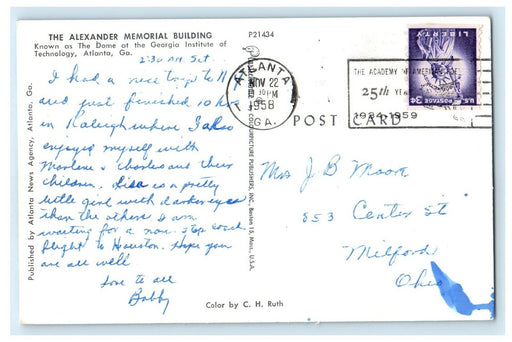 THE ALEXANDER MEMORIAL BUILDING
Known as The Dome at the Georgia Institute of
Technology, Atlanta, Ga.
P21434
2:30 AM Sat.
I had a nice trip to
and just finished 10 hrs
in Raleigh where I also
enjoyed myself with
Marlene & Charles and their
children. Lisa is a pretty
little girl with darker eyes
than the others I am
waiting for a non-stop coach
flight to Houston. Hope you
are all well
Love to all
Bobby
Published by Atlanta News Agency, Atlanta, Ga.
Color by C. H. Ruth
COLOURPICTURE PUBLISHERS, INC., Boston 15, Mass., U.S.A.
ATLANTA
NOV 22
PM
1958
GA.
THE ACADEMY OF AMERICAN POETS
25th YEAR
1934-1959
LIBERTY
U.S. POSTAGE 3¢
POST CARD
Mrs J B Moore
853 Center St
Milford
Ohio